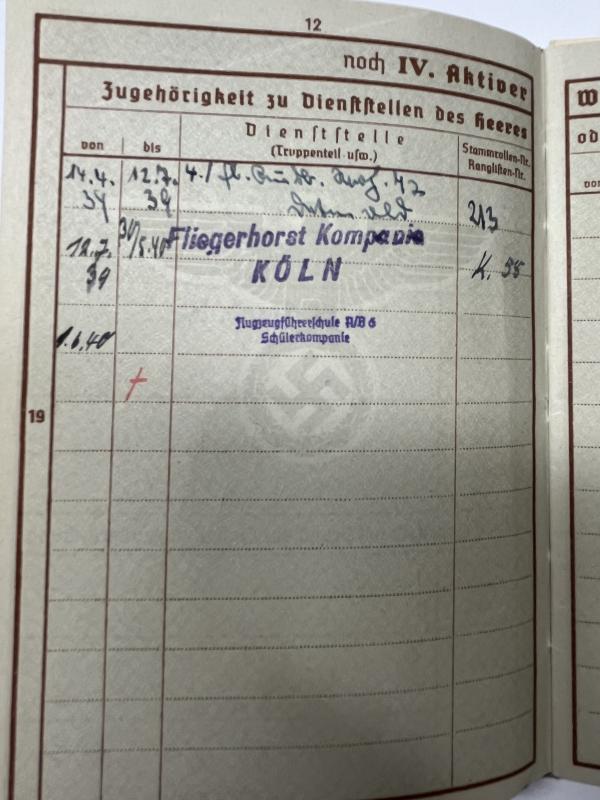 12
noch IV. Aktiver
Zugehörigkeit zu Dienststellen des Heeres
von bis Dienststelle (Truppenteil usw.) Stammrollen-Nr. Ranglisten-Nr.
14.4. 12.7. 4./ Fl.
39 213
Fliegerhorst Kompanie
12.7. 39
KÖLN K. 55
Flugzeugführerschule A/B 6
Schülerkompanie
1.6.40
19
W
od
von